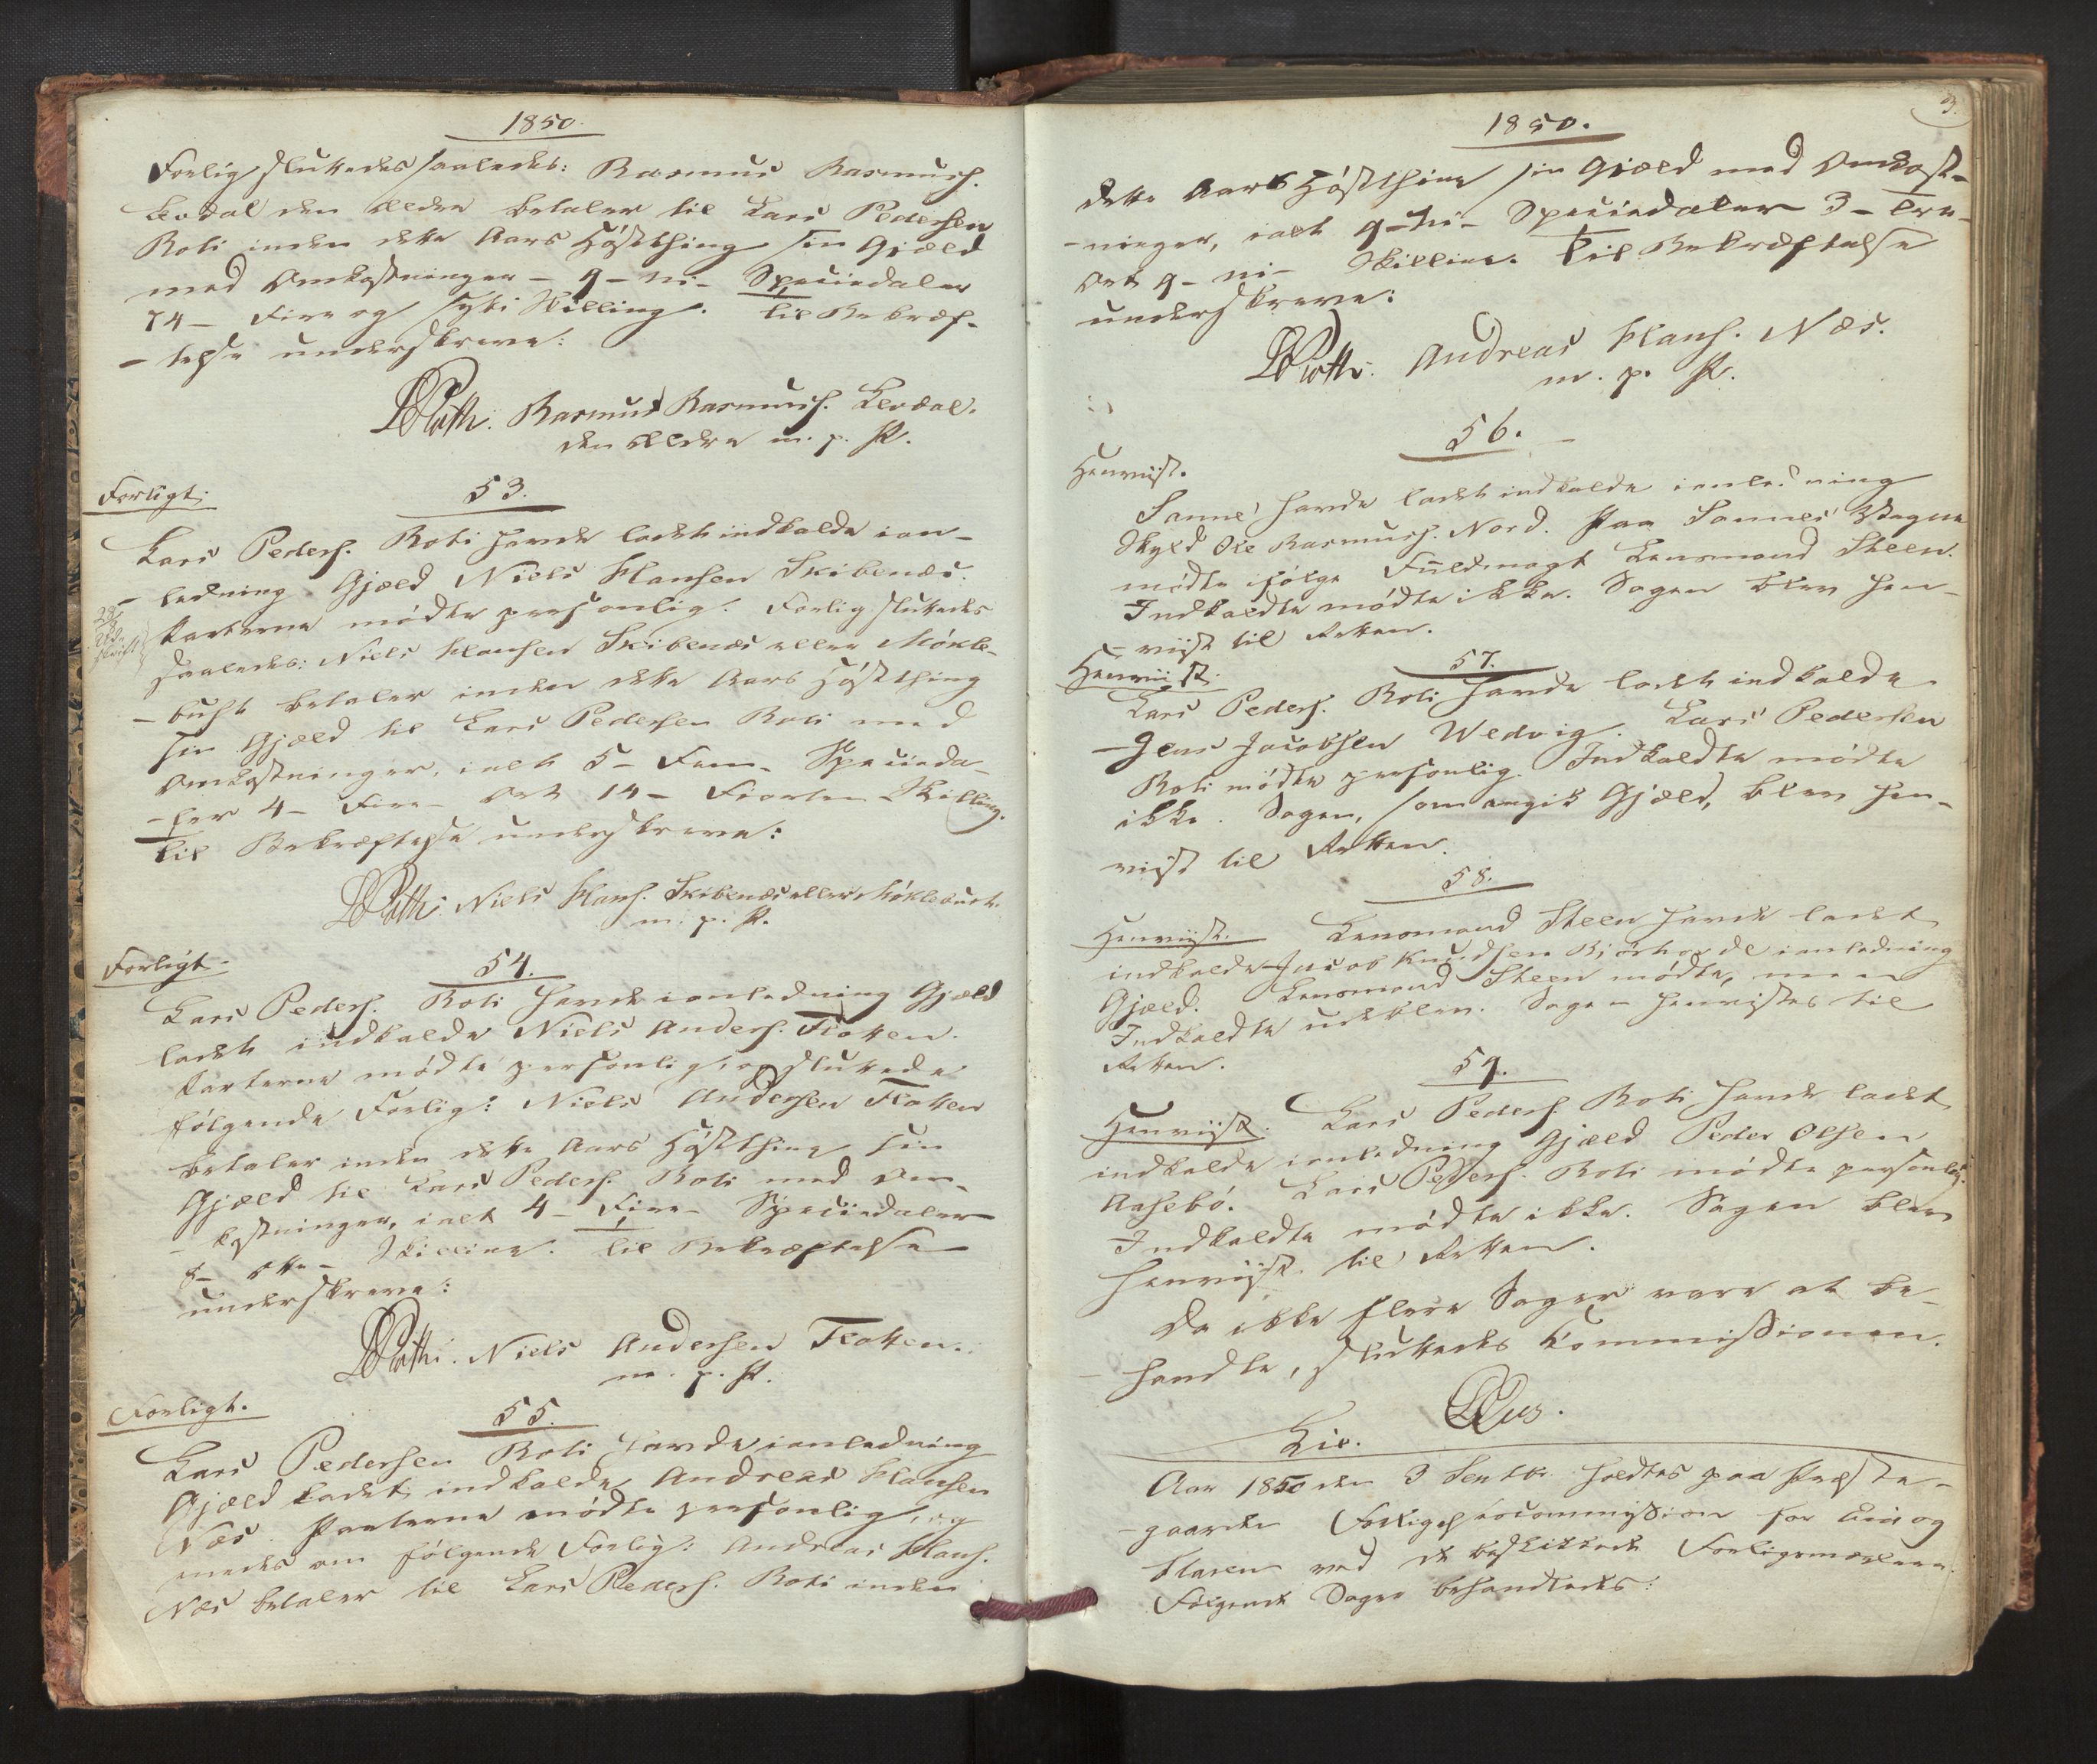 1850.
Forlig sluttedes saaledes: Rasmus Rasmuss.
Levdal den ældre betaler til Lars Pedersen
Roti inden dette Aars Høstthing sin Gjæld
med Omkostninger - 9 - ni - Speciedaler
74 - Fire og sytti Skilling. Til Bekræf-
- telse underskreve:
Rasmus Rasmuss. Levdal.
den ældre m. p. P.
Forligt.
53.
Lars Peders. Roti havde ladet indkalde ian-
- ledning Gjæld Niels Hansen Skibenæs.
Parterne mødte personlig. Forlig sluttedes
saaledes: Niels Hansen Skibenæs eller Møkle-
- bust betaler inden dette Aars Høstthing
sin Gjæld til Lars Pedersen Roti med
Omkostninger, ialt 5 - Fem - Specieda-
- ler 4 - Fire - Ort 14 - Fiorten Skilling.
Til Bekræftelse underskreve:
Niels Hans. Skibenæs eller Møklebust.
m. p. P.
Forligt.
54.
Lars Peders. Roti havde ianledning Gjæld
ladet indkalde Niels Anders. Flotten.
Parterne mødte personlig, og sluttede
følgende Forlig: Niels Andersen Flotten
betaler inden dette Aars Høstthing sin
Gjæld til Lars Peders. Roti med Om-
- kostninger, ialt 4 - Fire - Speciedaler
8 - otte - Skilling. Til Bekræftelse
underskreve:
Niels Andersen Flotten.
m. p. P.
Forligt.
55.
Lars Pedersen Roti havde ianledning
Gjæld ladet indkalde Andreas Hansen
Næs. Parterne mødte personlig, og
enedes om følgende Forlig: Andreas Hans.
Næs betaler til Lars Peders. Roti inden
3.
1850.
dette Aars Høstthing sin Gjæld med Omkost-
- ninger, ialt 9 - ni - Speciedaler 3 - tre -
Ort 9 - ni - Skilling. Til Bekræftelse
underskreve:
Andreas Hans. Næs.
m. p. P.
56.
Henviist.
Sanne havde ladet indkalde ianledning
Skyld Ole Rasmuss. Nord. Paa Sannes Vegne
mødte ifølge Fuldmagt Lensmand Steen.
Indkaldte mødte ikke. Sagen blev hen-
- viist til Retten.
Henviist.
57.
Lars Peders. Roti havde ladet indkalde
Jens Jacobsen Wedvig. Lars Pedersen
Roti mødte personlig. Indkaldte mødte
ikke. Sagen, som angik Gjæld, blev hen-
viist til Retten.
58.
Henviist. Lensmand Steen havde ladet
indkalde Jacob Knudsen ianledning
Gjæld. Lensmand Steen mødte, men
Indkaldte udeblev. Sagen henvistes til
Retten.
59.
Henviist. Lars Peders. Roti havde ladet
indkalde ianledning Gjæld Peder Olsen
Aasebø. Lars Peders. Roti mødte personlig.
Indkaldte mødte ikke. Sagen blev
henviist til Retten.
Da ikke flere Sager vare at be-
- handle, sluttedes Kommissionen.
Aar 1850 den 3 Septbr. holdtes paa Præste-
- gaarden Forligelsescommission for
ved de beskikkede Forligsmæglere.
Følgende Sager behandledes: